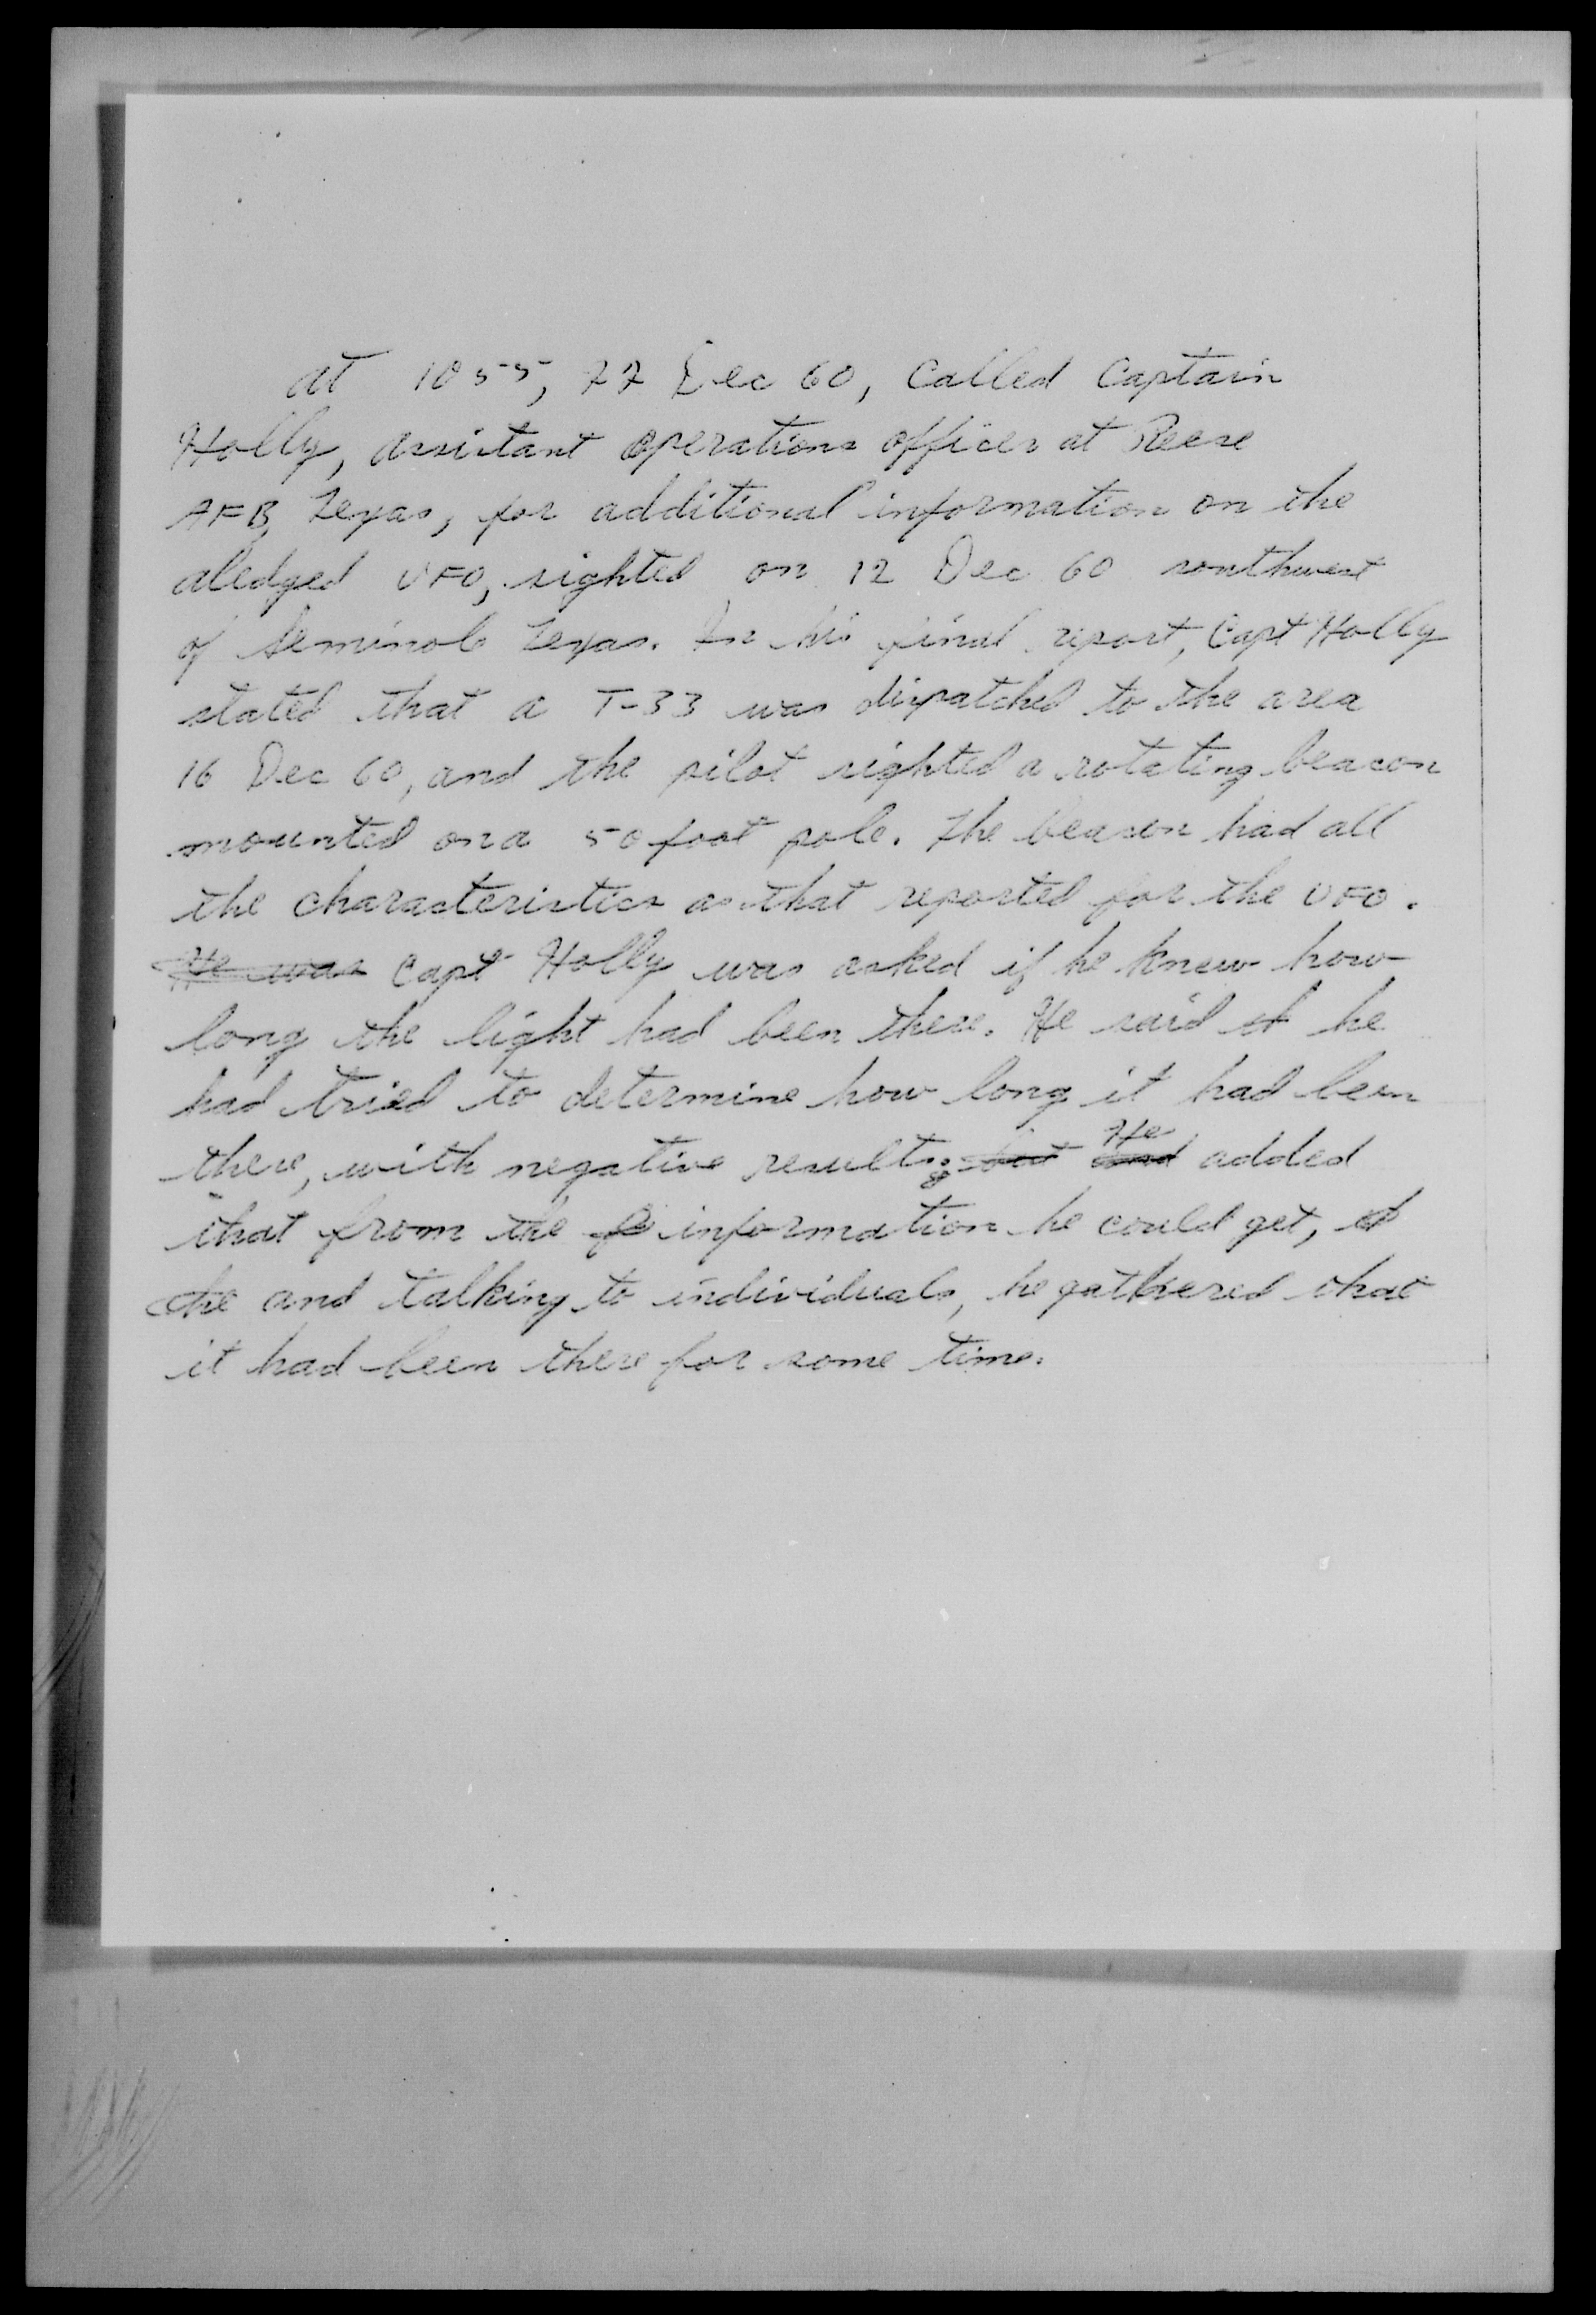 At 1055, 22 Dec 60, Called Captain
Holly, assistant operations officer at Reese
AFB, Texas, for additional information on the
aledged UFO, sighted on 12 Dec 60 southwest
of Seminole Texas. In his final report, Capt Holly
stated that a T-33 was dispatched to the area
16 Dec 60, and the pilot sighted a rotating beacon
mounted on a 50 foot pole. The beacon had all
the characteristics as that reported for the UFO.
He was Capt Holly was asked if he knew how
long the light had been there. He said he
had tried to determine how long it had been
there, with negative results; but and He added
that from the information he could get,
the and talking to individuals, he gathered that
it had been there for some time.